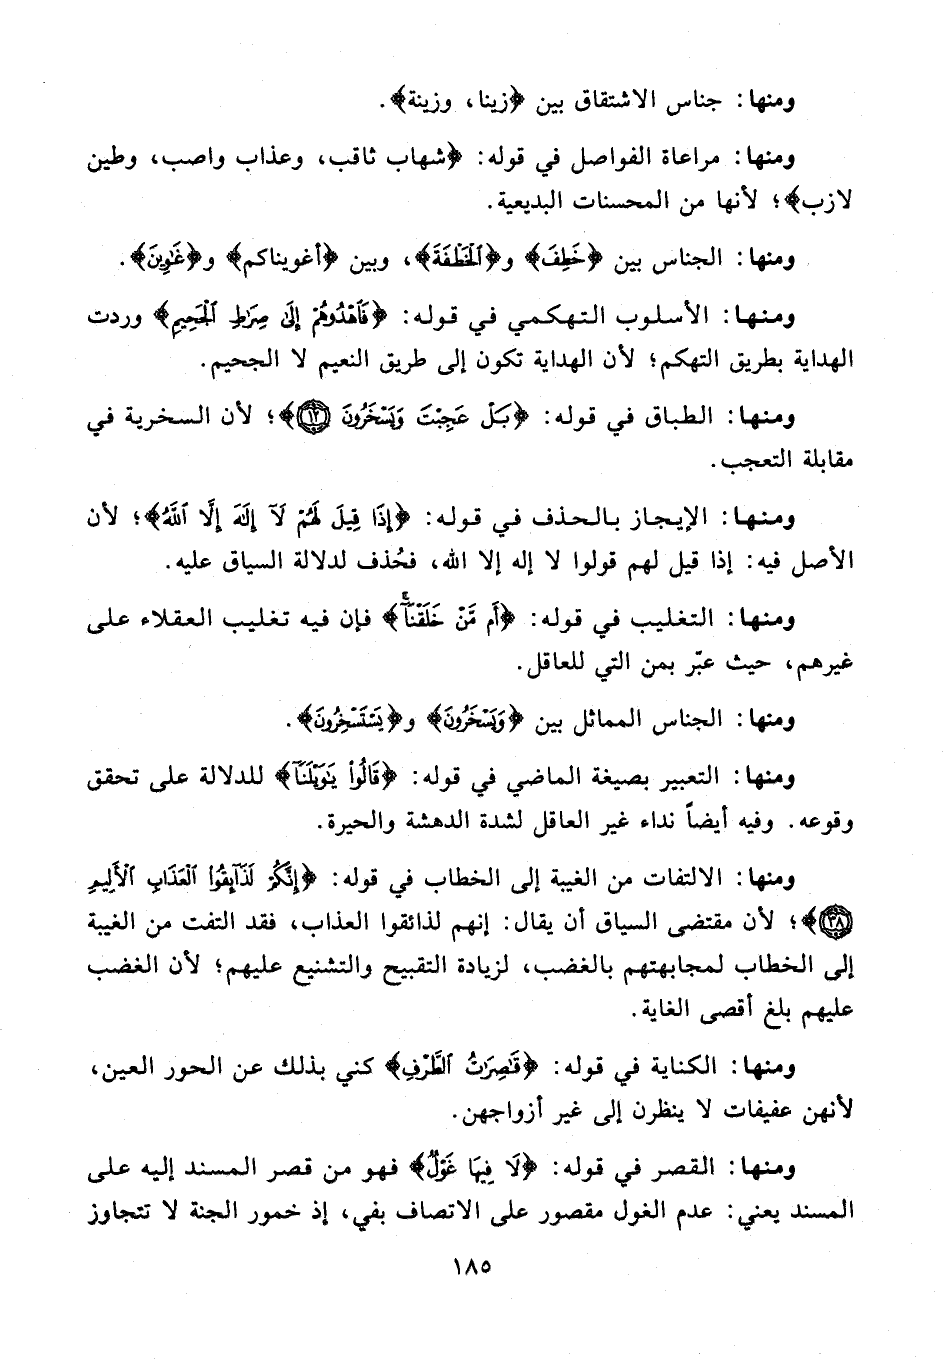 ومنها: جناس الاشتقاق بين ﴿زينا، وزينة﴾.
ومنها: مراعاة الفواصل في قوله: ﴿شهاب ثاقب، وعذاب واصب، وطين
لازب﴾؛ لأنها من المحسنات البديعية.
ومنها: الجناس بين ﴿خَطِفَ﴾ و﴿ٱلْخَطْفَةَ﴾، وبين ﴿أغويناكم﴾ و﴿غَٰوِينَ﴾.
ومنها: الأسلوب التهكمي في قوله: ﴿فَٱهْدُوهُمْ إِلَىٰ صِرَٰطِ ٱلْجَحِيمِ﴾ وردت
الهداية بطريق التهكم؛ لأن الهداية تكون إلى طريق النعيم لا الجحيم.
ومنها: الطباق في قوله: ﴿بَلْ عَجِبْتَ وَيَسْخَرُونَ ١٢﴾؛ لأن السخرية في
مقابلة التعجب.
ومنها: الإيجاز بالحذف في قوله: ﴿إِذَا قِيلَ لَهُمْ لَآ إِلَٰهَ إِلَّا ٱللَّهُ﴾؛ لأن
الأصل فيه: إذا قيل لهم قولوا لا إله إلا الله، فحُذف لدلالة السياق عليه.
ومنها: التغليب في قوله: ﴿أَم مَّنْ خَلَقْنَآ﴾ فإن فيه تغليب العقلاء على
غيرهم، حيث عبّر بمن التي للعاقل.
ومنها: الجناس المماثل بين ﴿وَيَسْخَرُونَ﴾ و﴿يَسْتَسْخِرُونَ﴾.
ومنها: التعبير بصيغة الماضي في قوله: ﴿قَالُوا۟ يَٰوَيْلَنَآ﴾ للدلالة على تحقق
وقوعه. وفيه أيضاً نداء غير العاقل لشدة الدهشة والحيرة.
ومنها: الالتفات من الغيبة إلى الخطاب في قوله: ﴿إِنَّكُمْ لَذَآئِقُوا۟ ٱلْعَذَابِ ٱلْأَلِيمِ
٣٨﴾؛ لأن مقتضى السياق أن يقال: إنهم لذائقوا العذاب، فقد التفت من الغيبة
إلى الخطاب لمجابهتهم بالغضب، لزيادة التقبيح والتشنيع عليهم؛ لأن الغضب
عليهم بلغ أقصى الغاية.
ومنها: الكناية في قوله: ﴿قَٰصِرَٰتُ ٱلطَّرْفِ﴾ كني بذلك عن الحور العين،
لأنهن عفيفات لا ينظرن إلى غير أزواجهن.
ومنها: القصر في قوله: ﴿لَا فِيهَا غَوْلٌ﴾ فهو من قصر المسند إليه على
المسند يعني: عدم الغول مقصور على الاتصاف بفي، إذ خمور الجنة لا تتجاوز
١٨٥